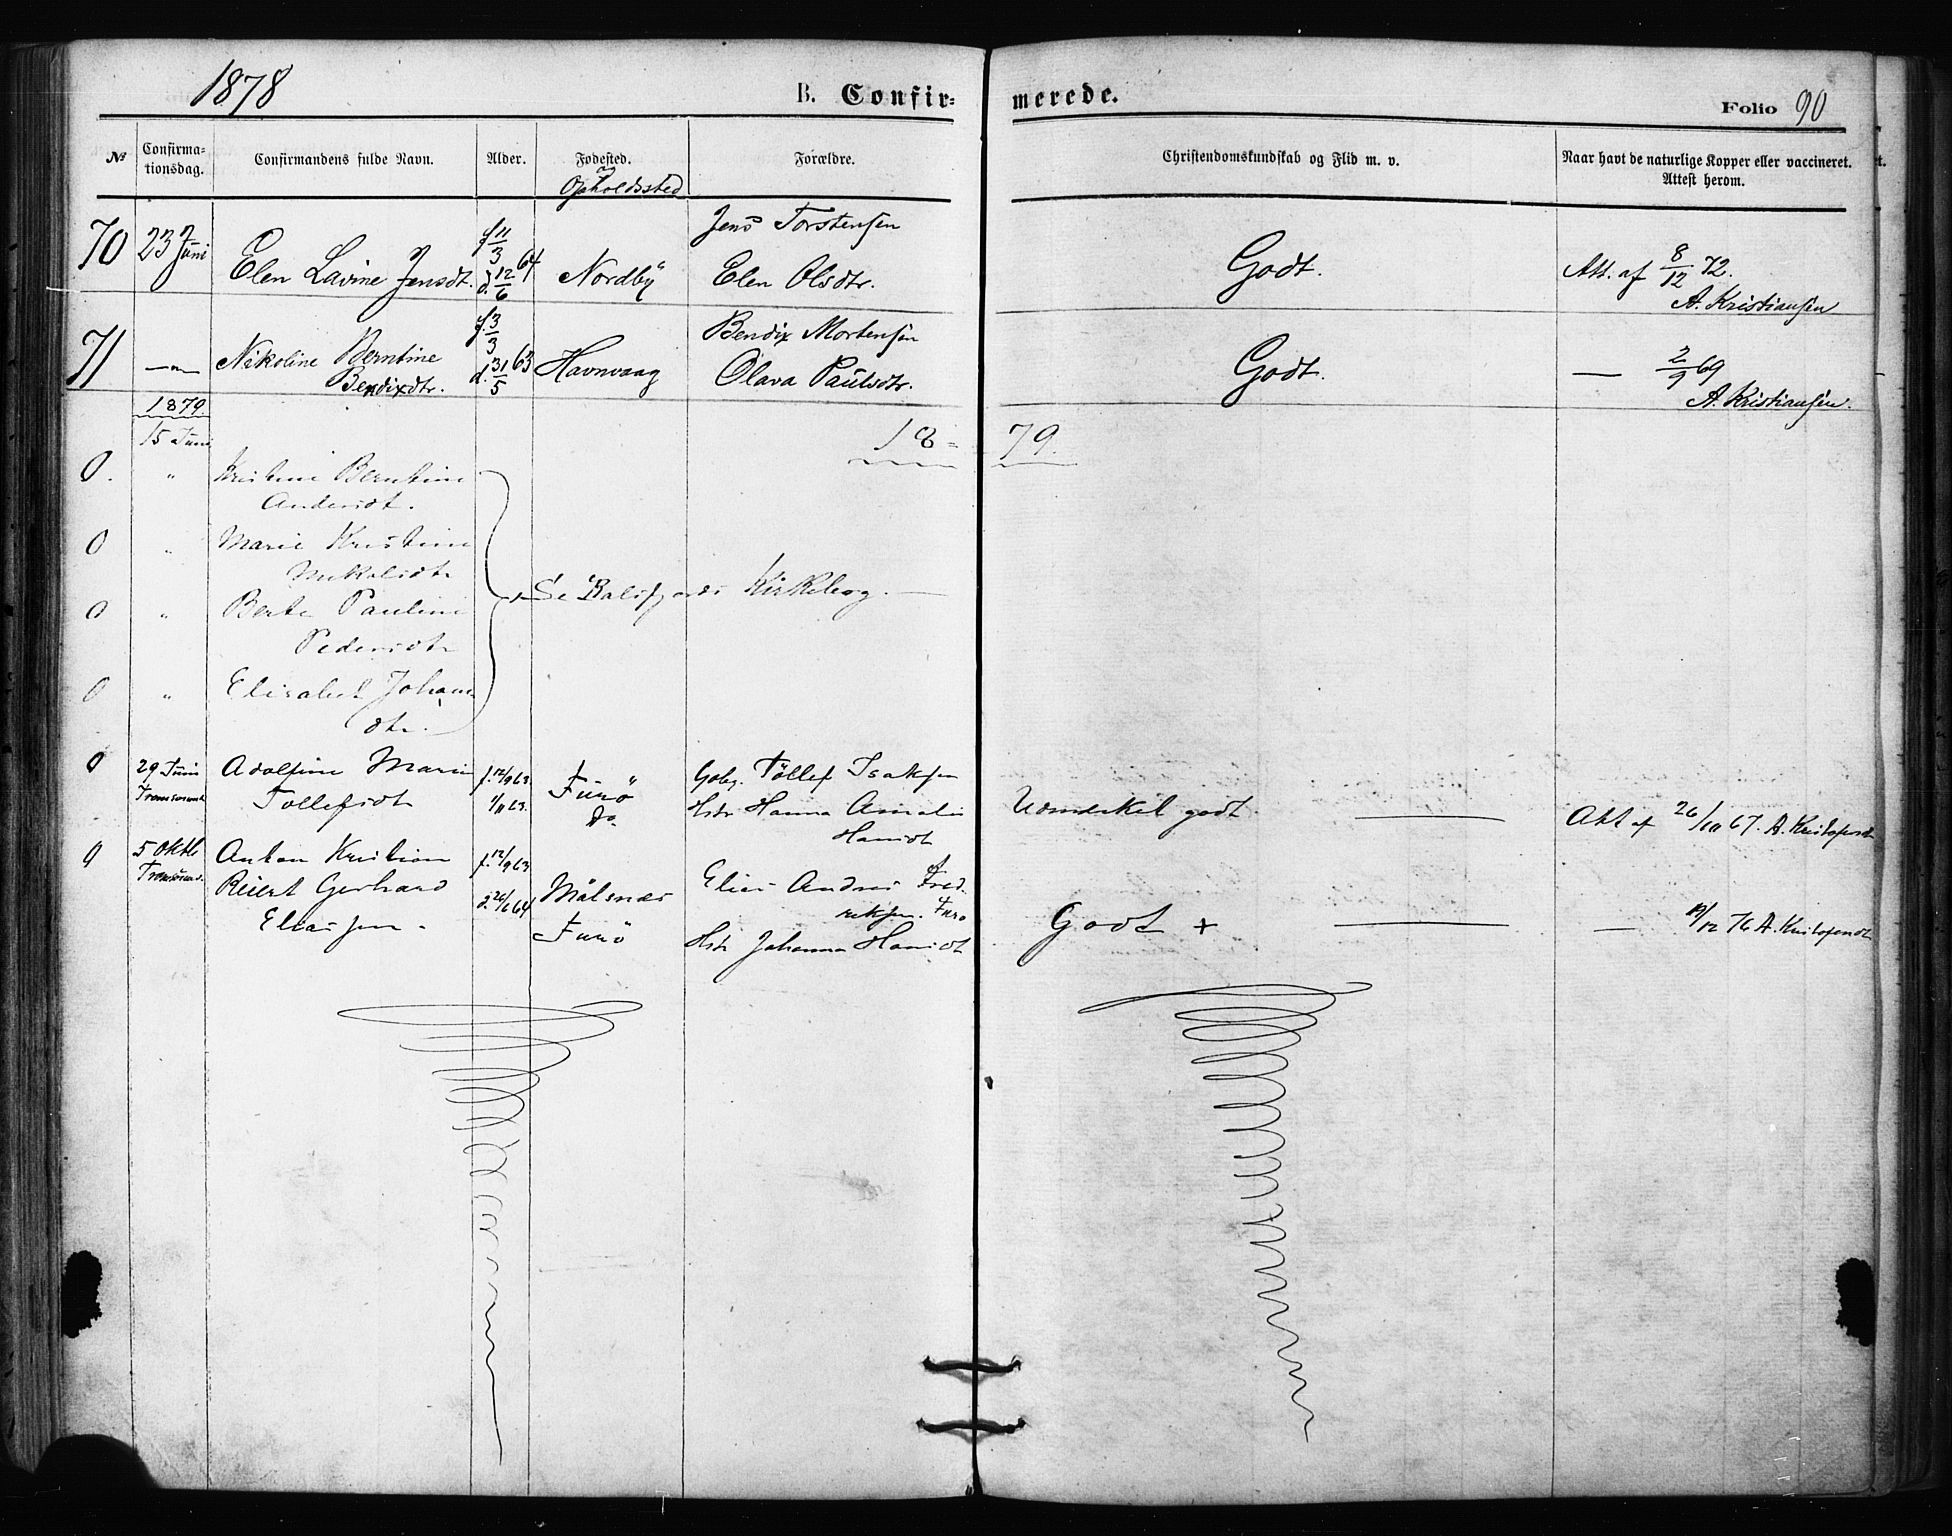 1878 B. Confir= merede. Folio 90
No Confirma-tionsdag. Confirmandens fulde Navn. Alder. Fødested. Forældre. Christendomskundskab og Flid m. v. Naar havt de naturlige Kopper eller vaccineret. Attest herom.
og Opholdssted
Jens Torstensen
70 23 Juni Elen Lavine Jensdt. f 11/3 64 d. 12/6 Nordby Elen Olsdtr. Godt. Att. af 8/12 72.
A. Kristiansen
Bendix Mortensen
71 —"— Nikoline Berntine f. 3/3 63 Havnvaag Godt. — 2/9 69
Bendixdtr. d. 31/5 Olava Paulsdtr. A. Kristiansen.
1879
15 Juni 18= 79.
0. " Kristine Berntine
Andersdt.
0 " Marie Kristine
Nikolsdtr
Se Balsfjords Kirkebog. —
0 " Berte Pauline
Pedersdtr
0 " Elisabet Johans
dtr.
0 29 Juni Adolfine Marie f. 12/9 63. Furö Gbr. Tollef Isaksen
Tromsösund Tollefsdt 1/11 63. do. Hstr Hanna Amalie Udmerket godt. — Att af 26/10 67. A. Kristofersdt
Hansdt
0 5 Oktb Anton Kristian f. 12/9 63
Tromsösund. Reiert Gerhard d. 26/6 64 Målsnes Elias Andreas Fred.
riksen. Furö
Eliassen. Furö Hstr Johanna Hansdt Godt + — — 19/12 76 A. Kristofersdt